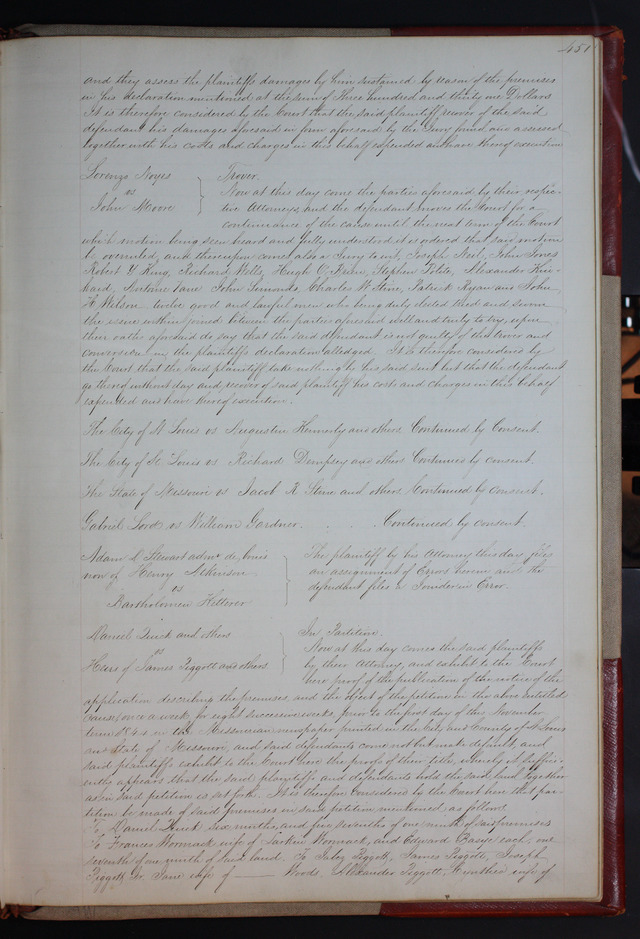 451
and they assess the plaintiffs damages by him sustained by reason of the premises
in his declaration mentioned at the sum of Three hundred and thirty one Dollars
It is therefore considered by the Court that the said plaintiff recover of the said
defendant his damages aforesaid in form aforesaid by the Jury found and assessed
together with his costs and charges in this behalf expended and have thereof execution
Lorenzo Noyes
vs
John Moore
Trover.
Now at this day come the parties aforesaid by their respec-
tive Attorneys, and the defendant moves the Court for a
continuance of the cause until the next term of the Court
which motion being seen heard and fully understood it is ordered that said motion
be overruled, and thereupon comes also a Jury to wit, Joseph John Jones
Robert Y King, Richard Wells, Hugh O Stephen Alexander
John Simonds, Charles W Stone, Patrick Ryan and John
H Wilson twelve good and lawful men who being duly elected tried and sworn
the issue within joined between the parties aforesaid well and truly to try, upon
their oaths aforesaid do say that the said defendant is not guilty of the trover and
conversion in the plaintiffs declaration alledged. It is therefore considered by
the Court that the said plaintiff take nothing by his said suit but that the defendant
go thereof without day and recover of said plaintiff his costs and charges in this behalf
expended and have thereof execution.
The City of St Louis vs Augustin Kennerly and others Continued by Consent.
The City of St Louis vs Richard Dempsey and others Continued by consent.
The State of Missouri vs Jacob R Stine and others, Continued by consent.
Gabriel Lord vs William Gardner. Continued by consent.
Adam L Stewart admr de bonis
non of Henry Atkinson
vs
Bartholomew
The plaintiff by his Attorney this day files
an assignment of Errors herein and the
defendant files a Joinder in Error.
Daniel Quick and others
vs
Heirs of James Piggott and others
In Partition.
Now at this day comes the said plaintiffs
by their Attorney, and exhibit to the Court
here proof of the publication of the notice of the
application describing the premises and the object of the petition in the above entitled
cause, once a week, for eight successive weeks, prior to the first day of this November
term 1844 in the Missourian newspaper printed in the City and County of St Louis
and State of Missouri, and said defendants come not but make default, and
said plaintiffs exhibit to the Court here the proofs of their title, whereby it suffici-
ently appears that the said plaintiffs and defendants hold the said land together
as in said petition is set forth. It is therefore considered by the Court here that par-
tition be made of said premises in said petition mentioned as follows
To Daniel Quick six ninths, and five sevenths of one ninth of said premises
To Frances Wormack wife of Larkin Wormack, and Edward each, one
seventh of one ninth of said land. To Piggott, James Piggott, Joseph
Piggott, Jr. Jane wife of Woods, Alexander Piggott, Cynthia wife of